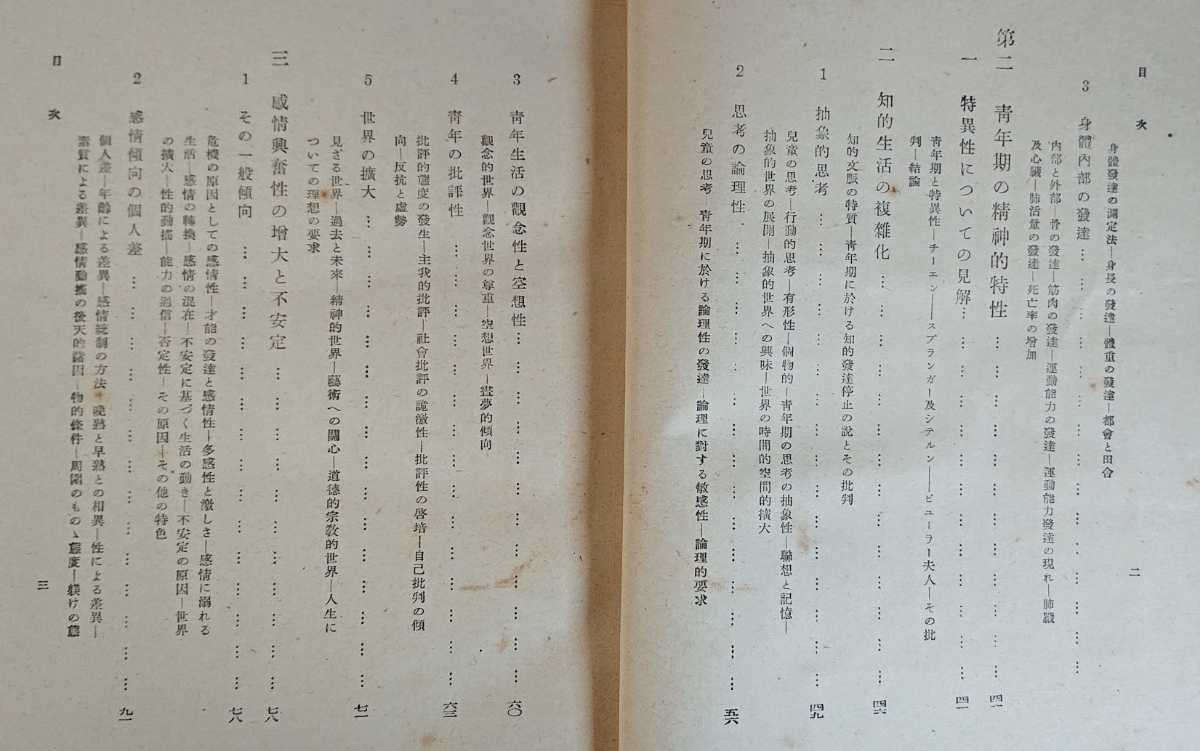 目次
二
身體發達の測定法—身長の發達—體重の發達—都會と田舍
3 身體內部の發達
內部と外部—骨の發達—筋肉の發達—運動能力の發達—運動能力發達の現れ—肺臟
及心臟—肺活量の發達—死亡率の增加
第二 靑年期の精神的特性 四一
一 特異性についての見解 四一
靑年期と特異性—チーエン——スプランガー及シテルン——ビューラー夫人—その批
判—結論
二 知的生活の複雜化 四六
知的文脈の特質—靑年期に於ける知的發達停止の說とその批判
1 抽象的思考 四九
兒童の思考—行動的思考—有形性—個物的—靑年期の思考の抽象性—聯想と記憶—
抽象的世界の展開—抽象的世界への興味—世界の時間的空間的擴大
2 思考の論理性 五六
兒童の思考—靑年期に於ける論理性の發達—論理に對する敏感性—論理的要求
3 靑年生活の觀念性と空想性 六〇
觀念的世界—觀念世界の尊重—空想世界—晝夢的傾向
4 靑年の批評性 六三
批評的態度の發生—主我的批評—社會批評の詭激性—批評性の啓培—自己批判の傾
向—反抗と虛勢
5 世界の擴大 七一
見ざる世界—過去と未來—精神的世界—藝術への關心—道德的宗敎的世界—人生に
ついての理想の要求
三 感情興奮性の增大と不安定 七八
1 その一般傾向 七八
危機の原因としての感情性—才能の發達と感情性—多感性と激しさ—感情に溺れる
生活—感情の轉換—感情の混在—不安定に基づく生活の動き—不安定の原因—世界
の擴大—性的動搖—能力の過信—否定性—その原因—その他の特色
2 感情傾向の個人差 九一
個人差—年齡による差異—感情統制の方法—晚熟と早熟との相異—性による差異—
素質による差異—感情動搖の後天的諸因—物的條件—周圍のものゝ態度—躾けの態
目次
三